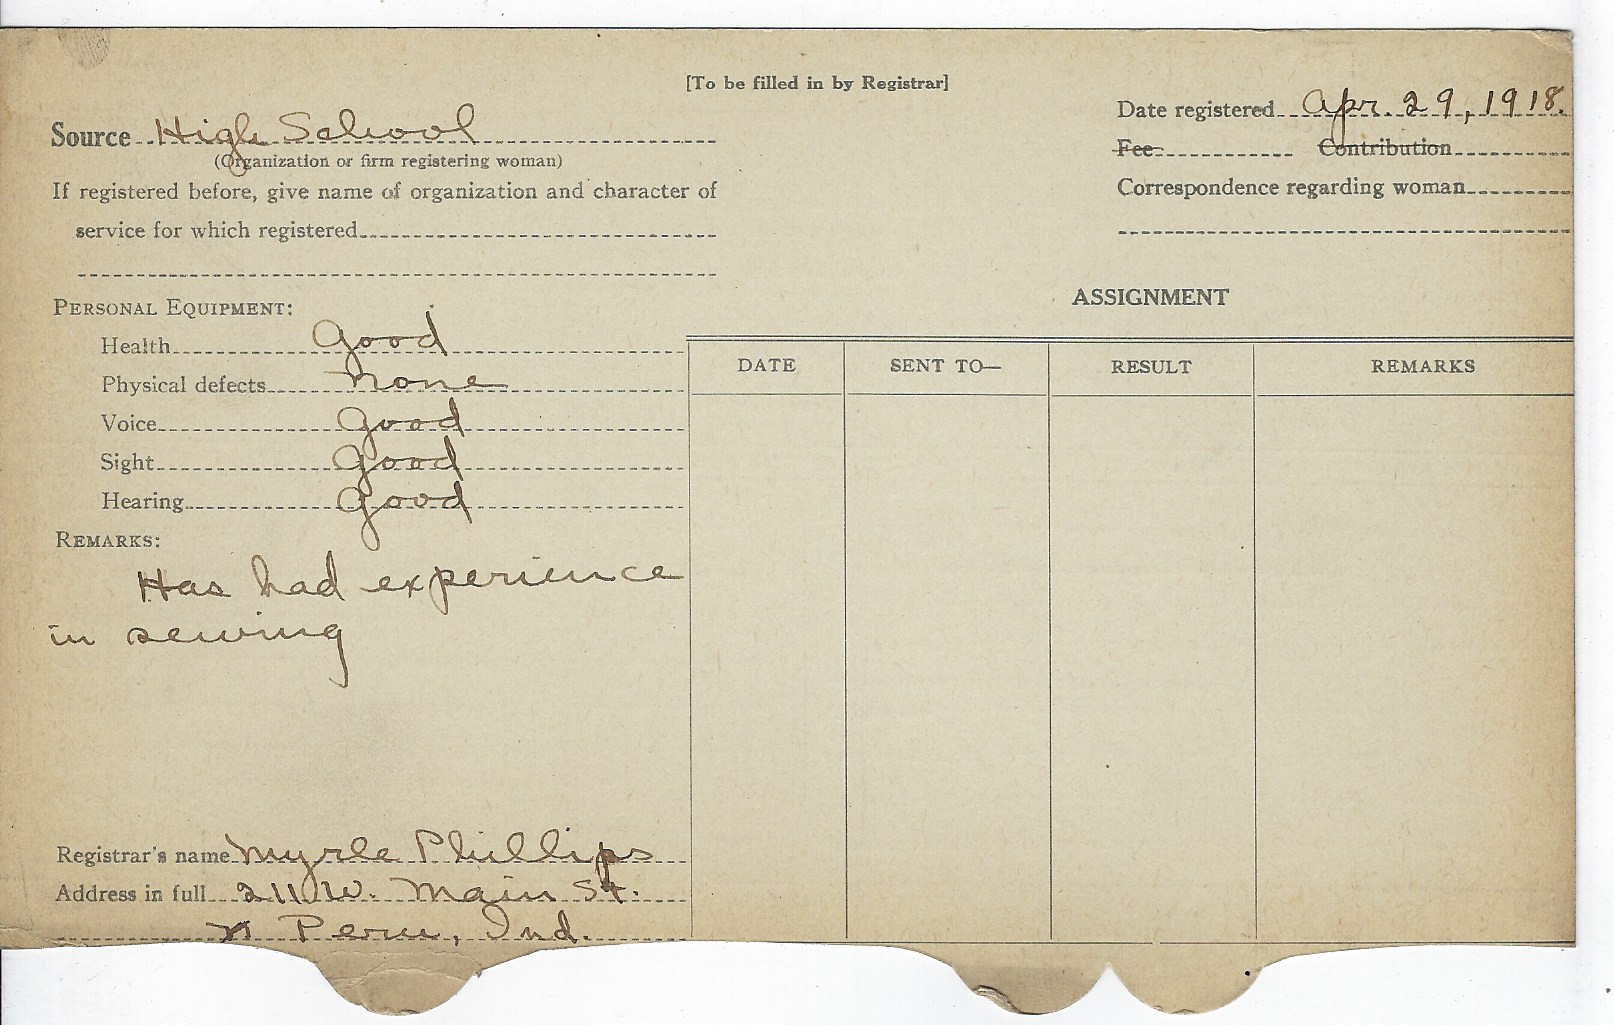 [To be filled in by Registrar]
Source High School
(Organization or firm registering woman)
If registered before, give name of organization and character of
service for which registered
Date registered Apr. 29, 1918.
Fee Contribution
Correspondence regarding woman
PERSONAL EQUIPMENT:
Health Good
Physical defects none
Voice Good
Sight Good
Hearing Good
REMARKS:
Has had experience
in sewing
Registrar's name Myrle Phillips
Address in full 211 W. Main St.
Peru, Ind.
ASSIGNMENT
DATE SENT TO— RESULT REMARKS